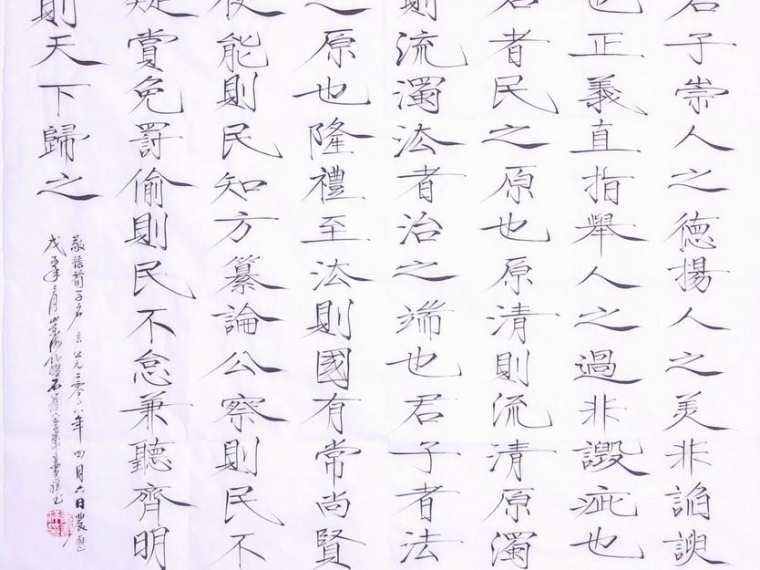 君子崇人之德揚人之美非諂諛
也正義直指舉人之過非譭疵也
君者民之原也原清則流清原濁
則流濁法者治之端也君子者法
之原也隆禮至法則國有常尚賢
使能則民知方纂論公察則民不
疑賞免罰偷則民不怠兼聽齊明
則天下歸之
荀子名言公元二〇〇八年四月六日農曆
戊子年三月